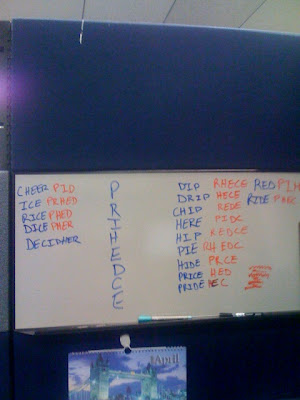 CHEER PID
ICE PRHED
RICE PHED
DICE PHER
DECIPHER
P
R
I
H
E
D
C
E
DIP RHECE
DRIP HECE
CHIP REDE
HERE PIDC
HIP REDCE
PIE RHEDC
HIDE PRCE
PRICE HED
PRIDE HEC
RED PIH
RIDE PHEC
April